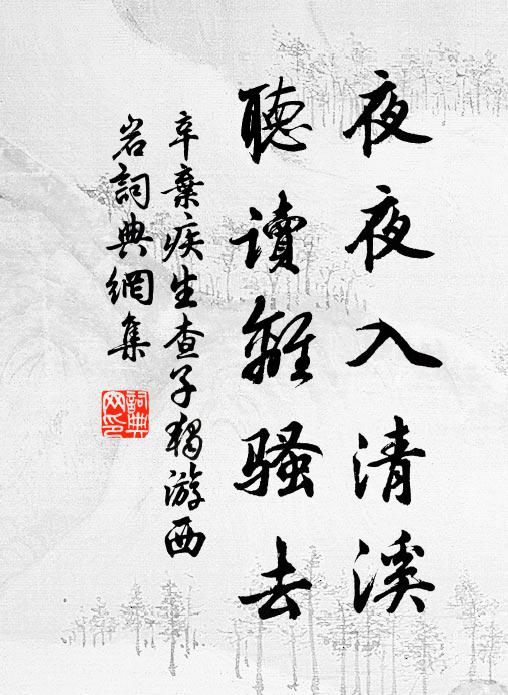 夜夜入清溪
聽讀離騷去
辛棄疾生查子獨游西
岩詞典網集
詞典網印